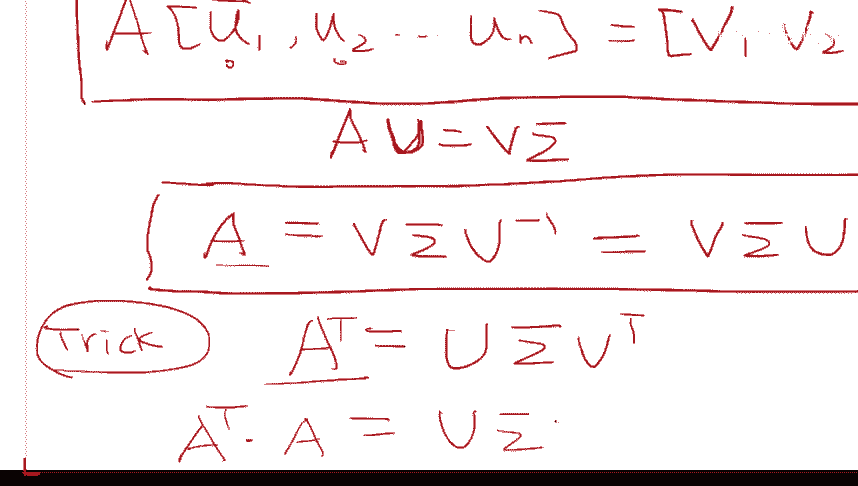 A [u̅₁, u₂ ... uₙ] = [V₁ V₂
AU = VΣ
A = VΣU⁻¹ = VΣU
Trick Aᵀ = UΣVᵀ
Aᵀ· A = UΣ